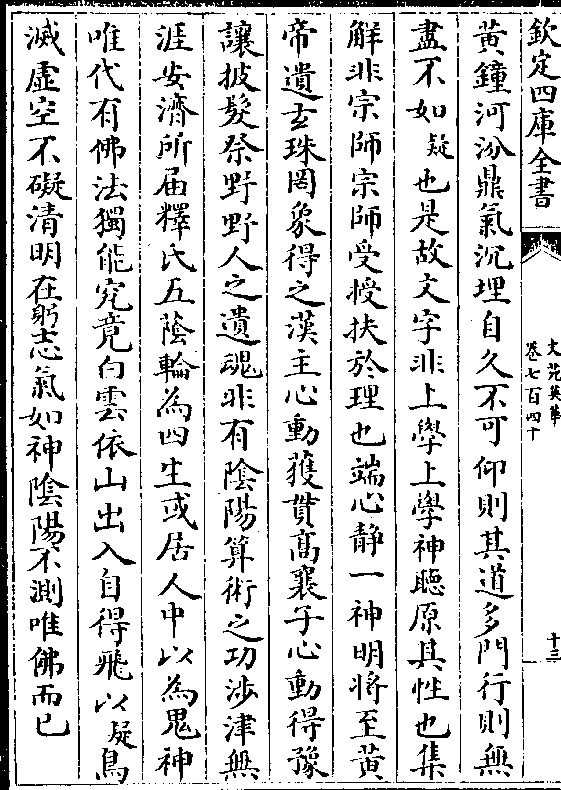 欽定四庫全書
文苑英華
卷七百四十
十三
黄鐘河汾鼎氣沉埋自久不可仰則其道多門行則無
盡不如疑也是故文字非上學上學神聽原其性也集
解非宗師宗師受授扶於理也端心静一神明將至黄
帝遺玄珠罔象得之漢主心動獲貫高襄子心動得豫
讓披髮祭野野人之遺魂非有陰陽算術之功涉津無
涯安濟所届釋氏五蔭輪為四生或居人中以為鬼神
唯代有佛法獨能究竟白雲依山出入自得飛以疑鳥
滅虚空不礙清明在躬志氣如神陰陽不測唯佛而已